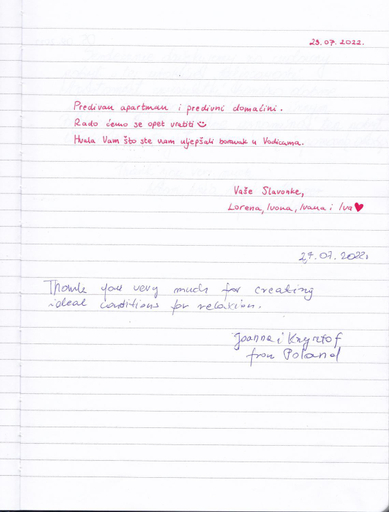 23.07.2022.
Predivan apartman i predivni domaćini.
Rado ćemo se opet vratiti
Hvala Vam što ste nam uljepšali boravak u Vodicama.
Vaše Slavonke,
Lorena, Ivona, Ivana i Iva
29.07.2022.
Thank you very much for creating
ideal conditions for relaxion.
Joanna i Krzysztof
from Poland